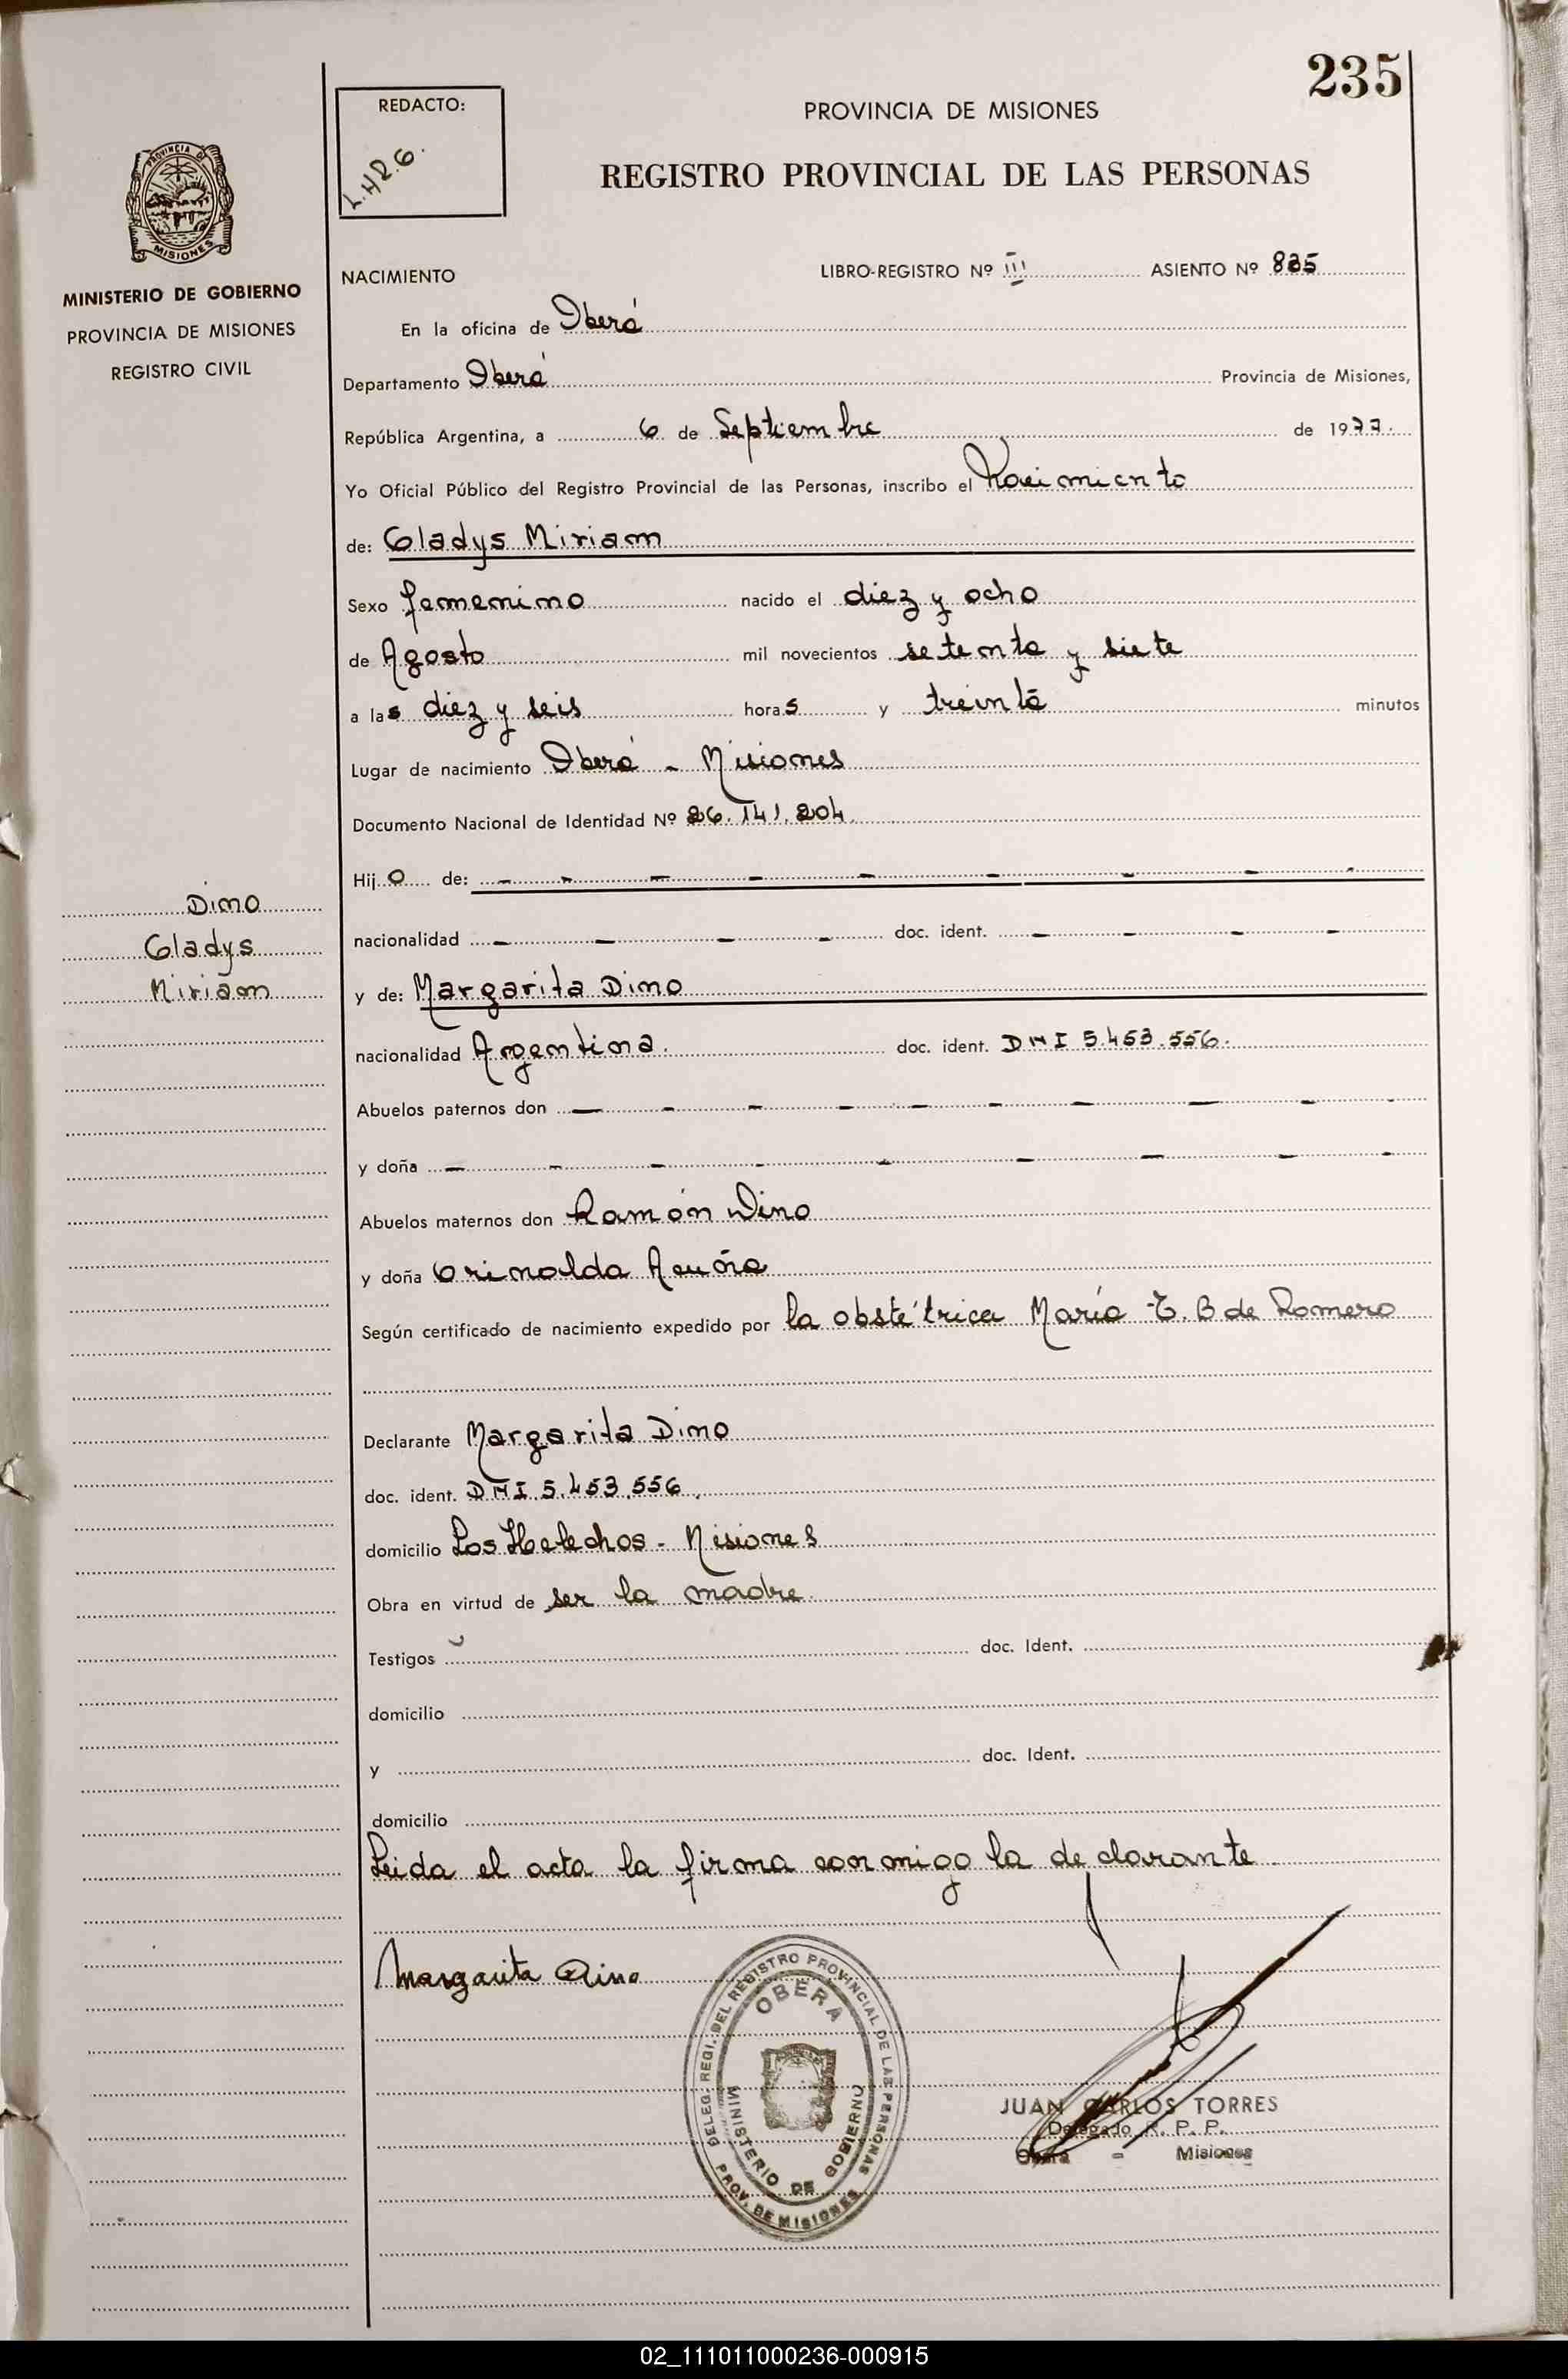 235
REDACTO:
L.H.R.G.
PROVINCIA DE MISIONES
REGISTRO PROVINCIAL DE LAS PERSONAS
PROVINCIA DE
MISIONES
MINISTERIO DE GOBIERNO
PROVINCIA DE MISIONES
REGISTRO CIVIL
NACIMIENTO LIBRO-REGISTRO Nº III ASIENTO Nº 835
En la oficina de Oberá
Departamento Oberá Provincia de Misiones,
República Argentina, a 6 de Septiembre de 1977.
Yo Oficial Público del Registro Provincial de las Personas, inscribo el Nacimiento
de: Gladys Miriam
Sexo femenino nacido el diez y ocho
de Agosto mil novecientos setenta y siete
a las diez y seis horas y treinta minutos
Lugar de nacimiento Oberá - Misiones
Documento Nacional de Identidad Nº 26.141.204
Hijo de: - - - - - - - - -
Dino
Gladys
Miriam
nacionalidad - - - - doc. ident. - - - -
y de: Margarita Dino
nacionalidad Argentina. doc. ident. DNI 5.453.556.
Abuelos paternos don - - - - - - - - - -
y doña - - - - - - - - -
Abuelos maternos don Ramón Dino
y doña Grinalda Acuña
Según certificado de nacimiento expedido por la obstétrica María E. B de Romero
Declarante Margarita Dino
doc. ident. DNI 5.453.556.
domicilio Los Helechos - Misiones
Obra en virtud de ser la madre.
Testigos doc. Ident.
domicilio
y doc. Ident.
domicilio
Leida el acta la firma conmigo la declarante
Margarita Dino
DELEG. REGI. DEL REGISTRO PROVINCIAL DE LAS PERSONAS
OBERA
MINISTERIO DE GOBIERNO
PROV. DE MISIONES
JUAN CARLOS TORRES
Delegado R. P. P.
Oberá - Misiones
02_111011000236-000915